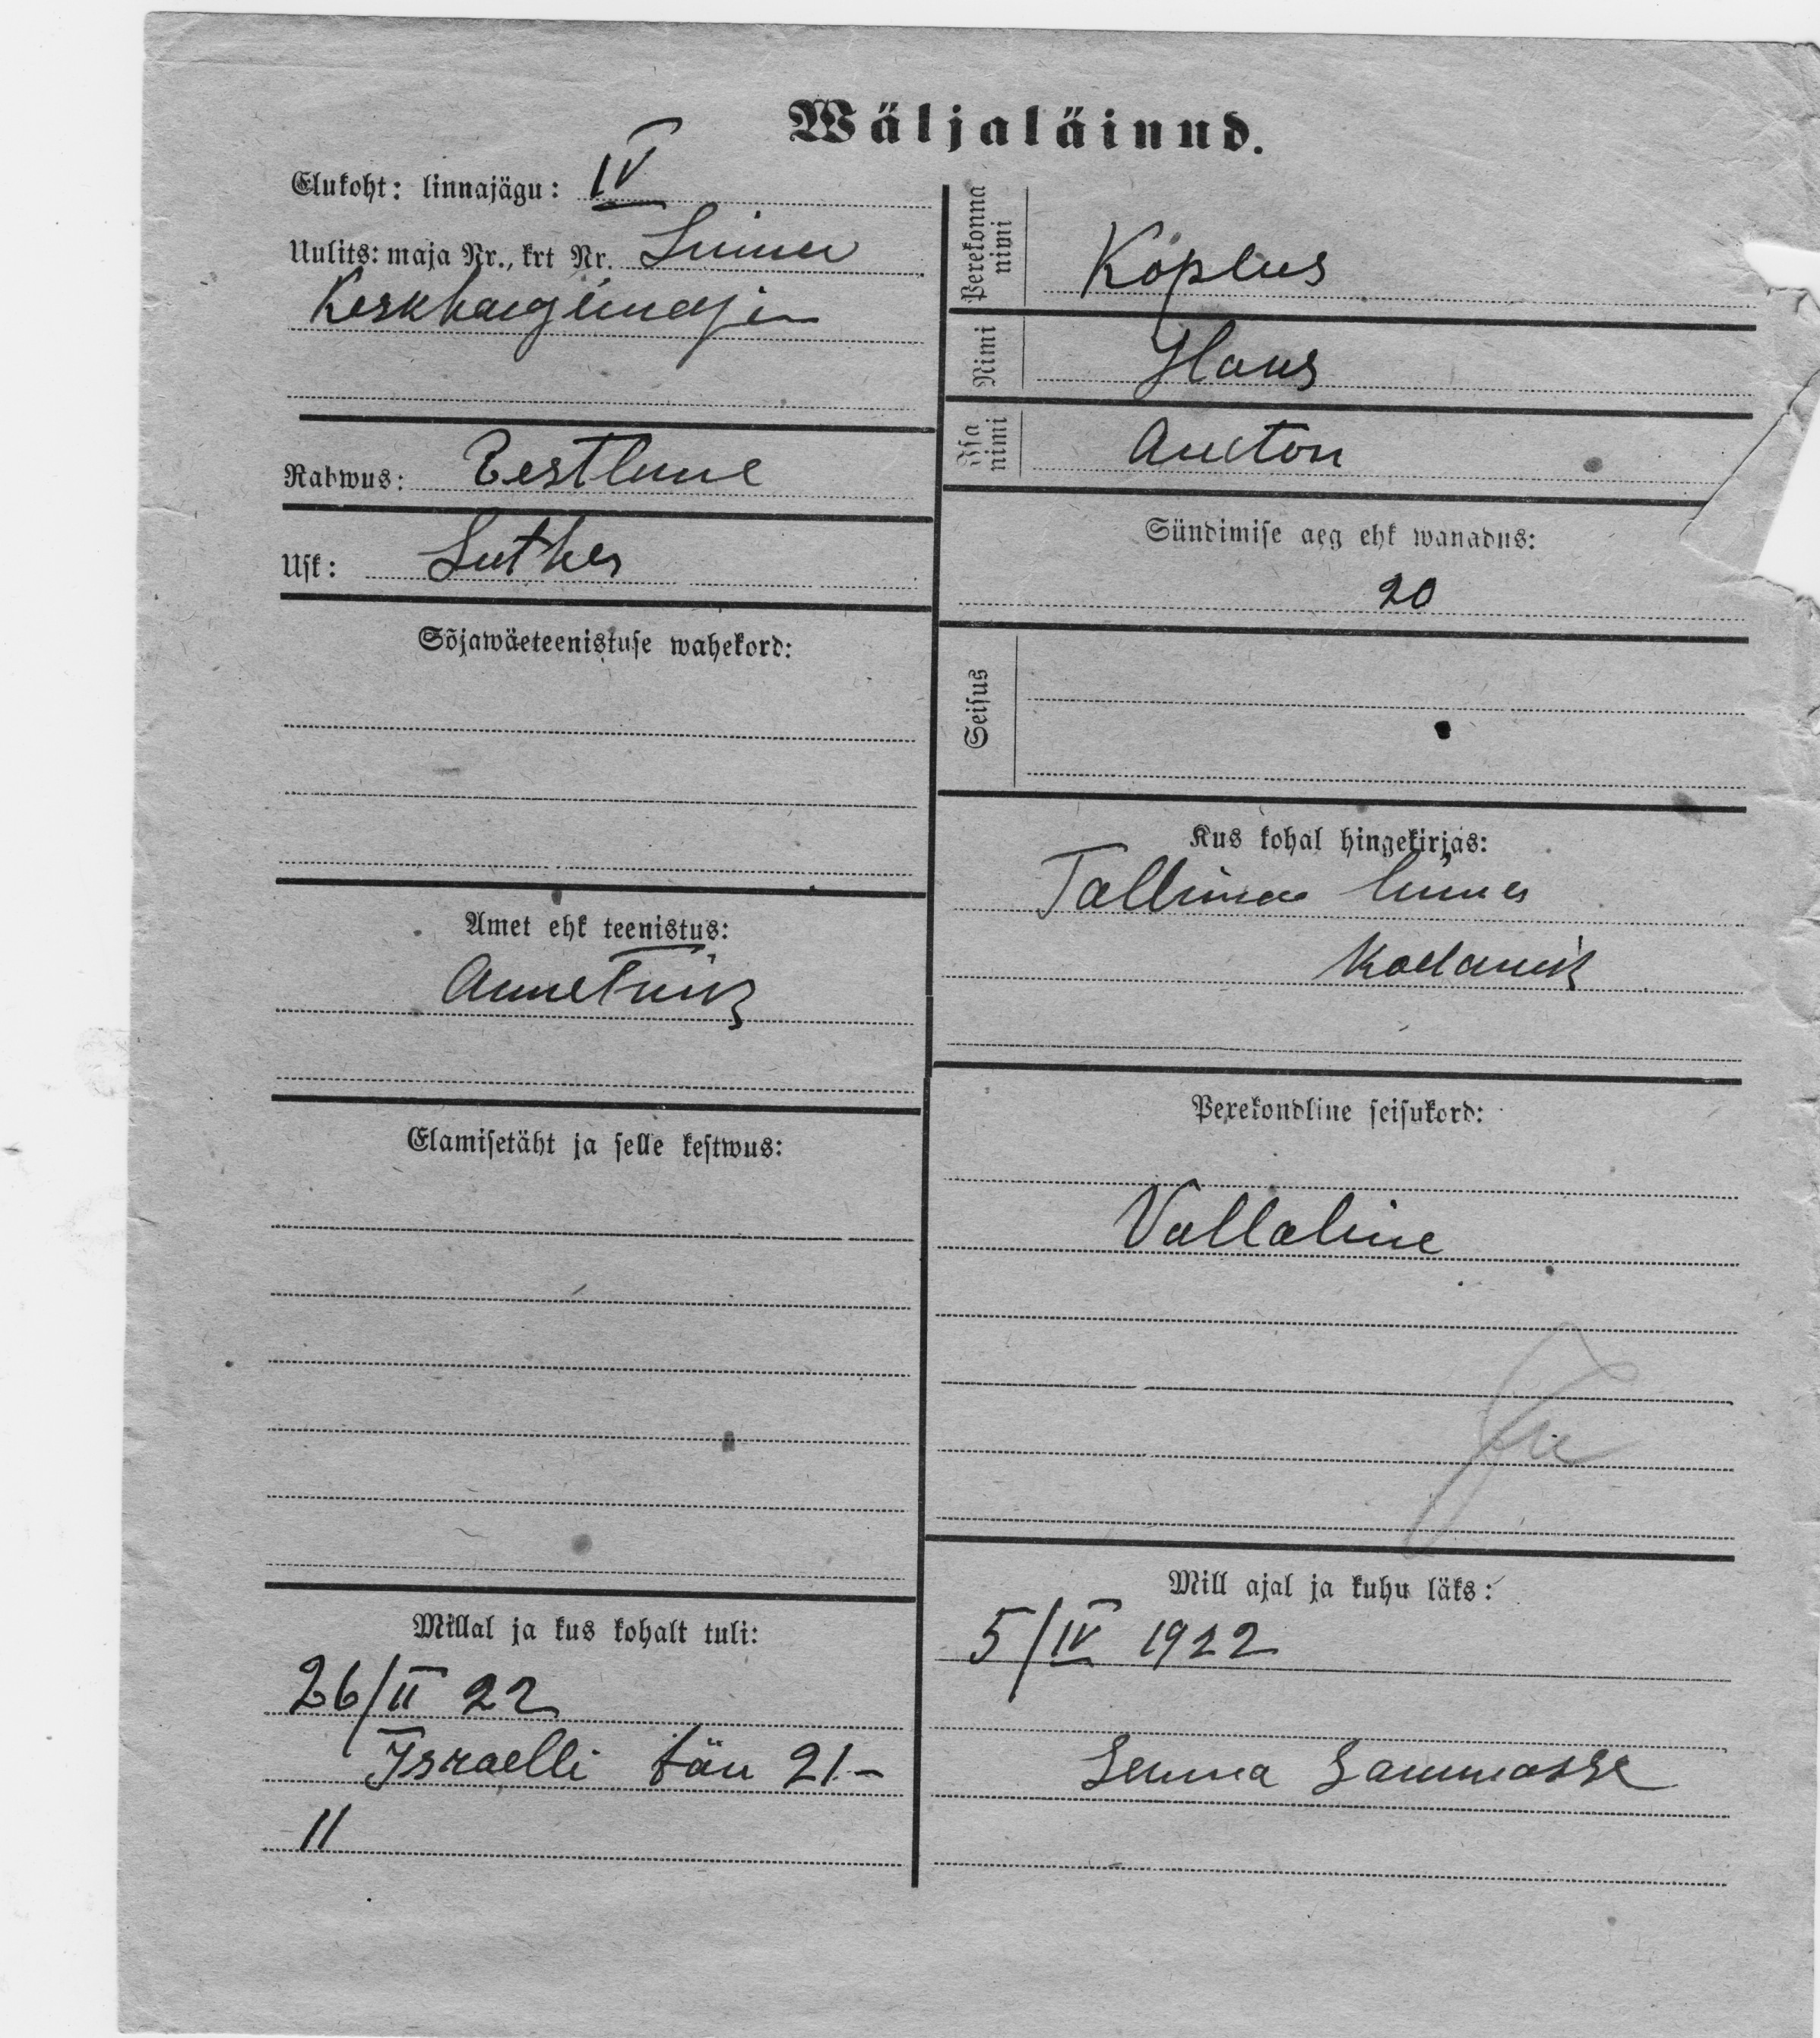 Wäljaläinud.
Elukoht: linnajägu: IV
Uulits: maja Nr., krt Nr. Linna
Keskhaigemaja
Rahwus: Eestlane
Usk: Luther
Sõjawäeteenistuse wahekord:
Amet ehk teenistus:
Ametnik
Elamisetäht ja selle kestwus:
Millal ja kus kohalt tuli:
26/II 22
Israelli tän 21 -
11
Perekonna nimi Köplus
Nimi Hans
Isa nimi Anton
Sündimise aeg ehk wanadus:
20
Seisus
Kus kohal hingekirjas:
Tallinna linna
Kodanik
Perekondline seisukord:
Vallaline
Mill ajal ja kuhu läks:
5/IV 1922
Linna Lammasse